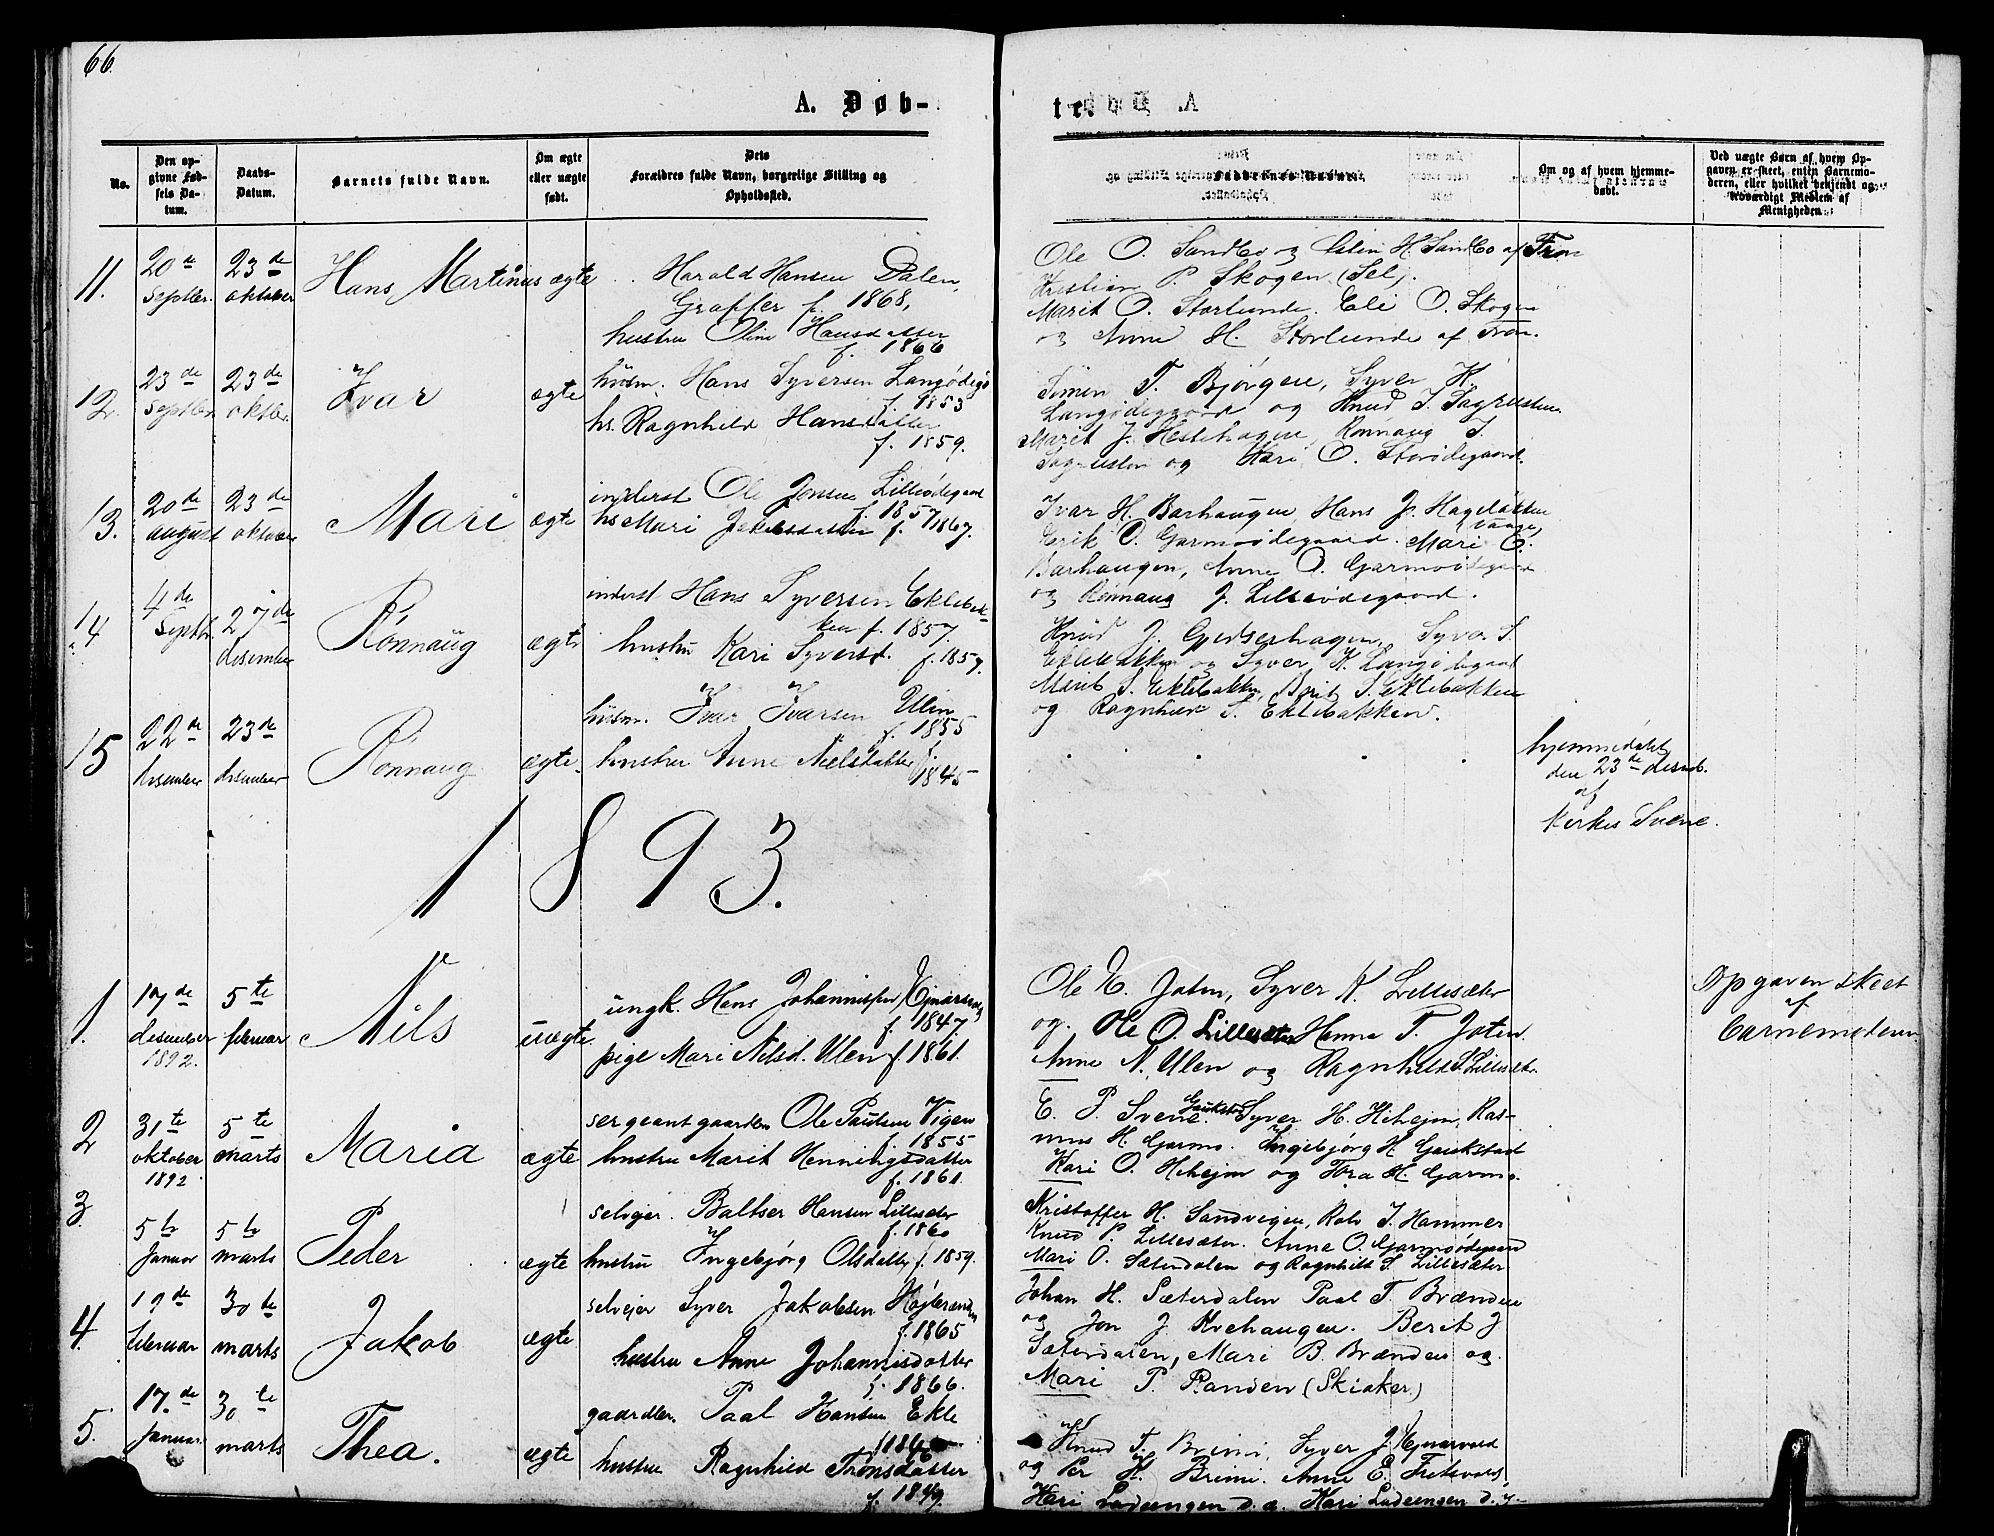 66
A. Døb-
te.
No.
Den op-
givne Fød-
sels Da-
tum.
Daabs-
Datum.
Barnets fulde Navn.
Om ægte
eller uægte
født.
Dets
Forældres fulde Navn, borgerlige Stilling og
Opholdssted.
Faddernes Navne.
Om og af hvem hjemme-
døbt.
Ved uægte Børn af hvem Op-
gaven er skeet, enten Barnemo-
deren, eller hvilket bekjendt og
troværdigt Medlem af
Menigheden.
11. 20de Septbr. 23de oktober Hans Martinus ægte
Harald Hansen Dalen,
f. 1868,
hustru Oline Hansdatter
f. 1866
Ole O. Sandbo og H. Sandbo af Fron
Kristian P. Skogen (Sel).
Marit O. Storlunde. Eli O. Skogen
og Anne H. Storlunde af Fron.
12. 23de Septbr. 23de oktbr. Ivar ægte
husm. Hans Syversen Langødegd
f. 1853
hs. Ragnhild Hansdatter
f. 1859.
Simen T. Bjørgen, Syver K.
Langødegaard og Knud I.
Marit J. Hestehagen, Rønnaug I.
og Kari O. Storødegaard.
13. 20de august 23de oktober Mari ægte
inderst Ole Jonsen Lilleødegaard
f. 1857
hs Mari f. 1867.
Ivar H. Barhaugen, Hans J.
Vaage,
Erik O. Garmoødegaard. Mari O.
Barhaugen, Anne O. Garmoødegaard
og Rønnaug J. Lilleødegaard.
14 4de Septbr. 27de desember Rønnaug ægte
inderst Hans Syversen Eklebak-
ken f. 1857.
hustru Kari Syversd. f. 1857.
Knud J. Gjetserhagen, Syver S.
Eklebakken og Syver K. Langødegaard
Marit S. Eklebakken, Berit S. Eklebakken
og Ragnhild S. Eklebakken.
15 22de desember 23de desember Rønnaug ægte.
husm. Ivar Ivarsen Ulen
f. 1855
hustru Anne Nielsdatter f.
1845
hjemmedøbt
den 23de desemb.
af
Kirkes. Svene.
1893.
1. 17de desember 1892. 5te februar Nils uægte
ungk. Hans Johannissen
f. 1847
pige Mari Nilsd. Ulen f. 1861.
Ole E. Joten, Syver K. Lillesæter
og Ole O. Lillesæter Hanna T. Joten.
Anne N. Ulen og Ragnhild S. Lillesæter.
Opgaven skeet
af
barnemoderen
2 31te oktober 1892. 5te marts Maria ægte
sergeant gaardm. Ole Paulsen Vigen
f. 1855
hustru Marit Henningsdatter
f. 1861.
E. P. Svene. Syver H. Hihejm, Ras-
mus H. Garmo. Ingebjørg H. Gaukstad
Kari O. Hihejm og Tora H. Garmo.
3 5te Januar 5te marts Peder ægte
selvejer. Baltser Hansen Lillesæter
f. 1860
hustru Ingebjørg Olsdatter f. 1859.
Kristoffer H. Sandvigen, Rolv J. Hammer
Knud P. Lillesæter. Anne O. Garmoødegaard
Mari O. Sæterdalen og Ragnhild S. Lillesæter
4. 19de februar 30te marts Jakob ægte
selvejer Syver Jakobsen Højbrænden
f. 1865
hustru Anne Johannisdatter
f. 1866.
Johan H. Sæterdalen Paal T. Brænden
og Jon J. Kvehaugen. Berit J
Sæterdalen, Mari B. Brænden og
Mari P. Randen (Skiaker)
5. 17de Januar 30te marts Thea. ægte
gaardbr. Paal Hansen Ekle
hustru Ragnhild Trondsdatter
Knud T. Brimi, Syver J.
og Per H. Brimi. Anne E.
Kari Ladeengen d. æ. Kari Ladeengen d. y.